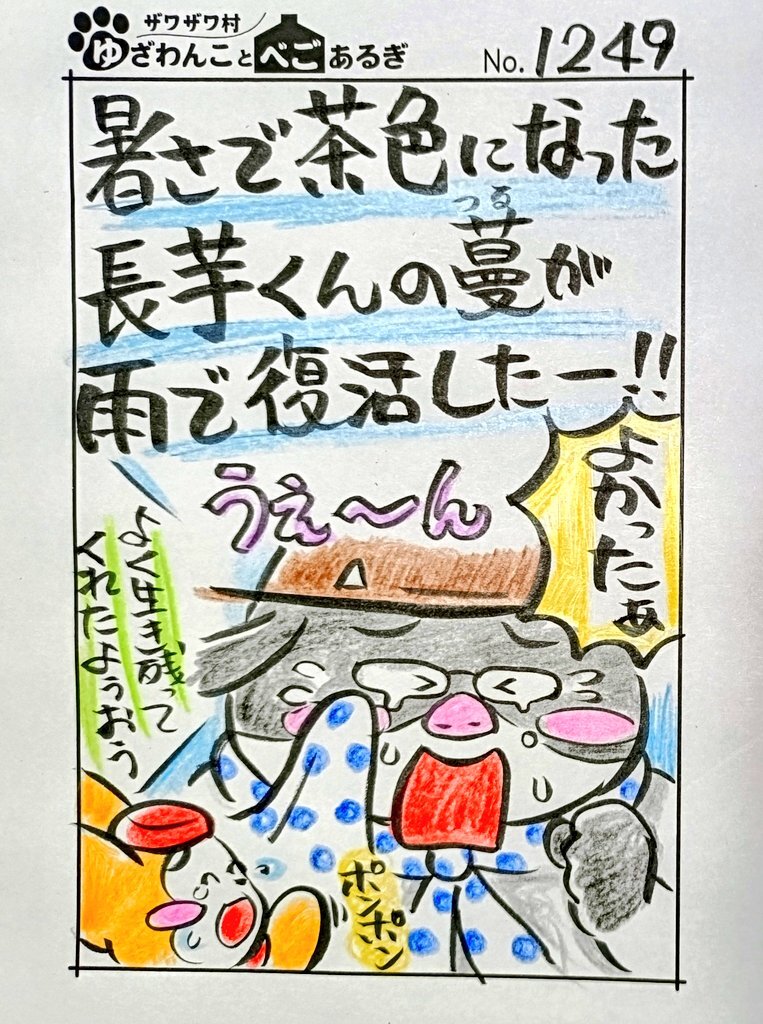 ザワザワ村
ゆざわんことべごあるぎ
No. 1249
暑さで茶色になった
長芋くんの蔓が
つる
雨で復活したー!!
よかったぁ
うえ〜ん
よく生き残って
くれたよぅおぅ
ポンポン